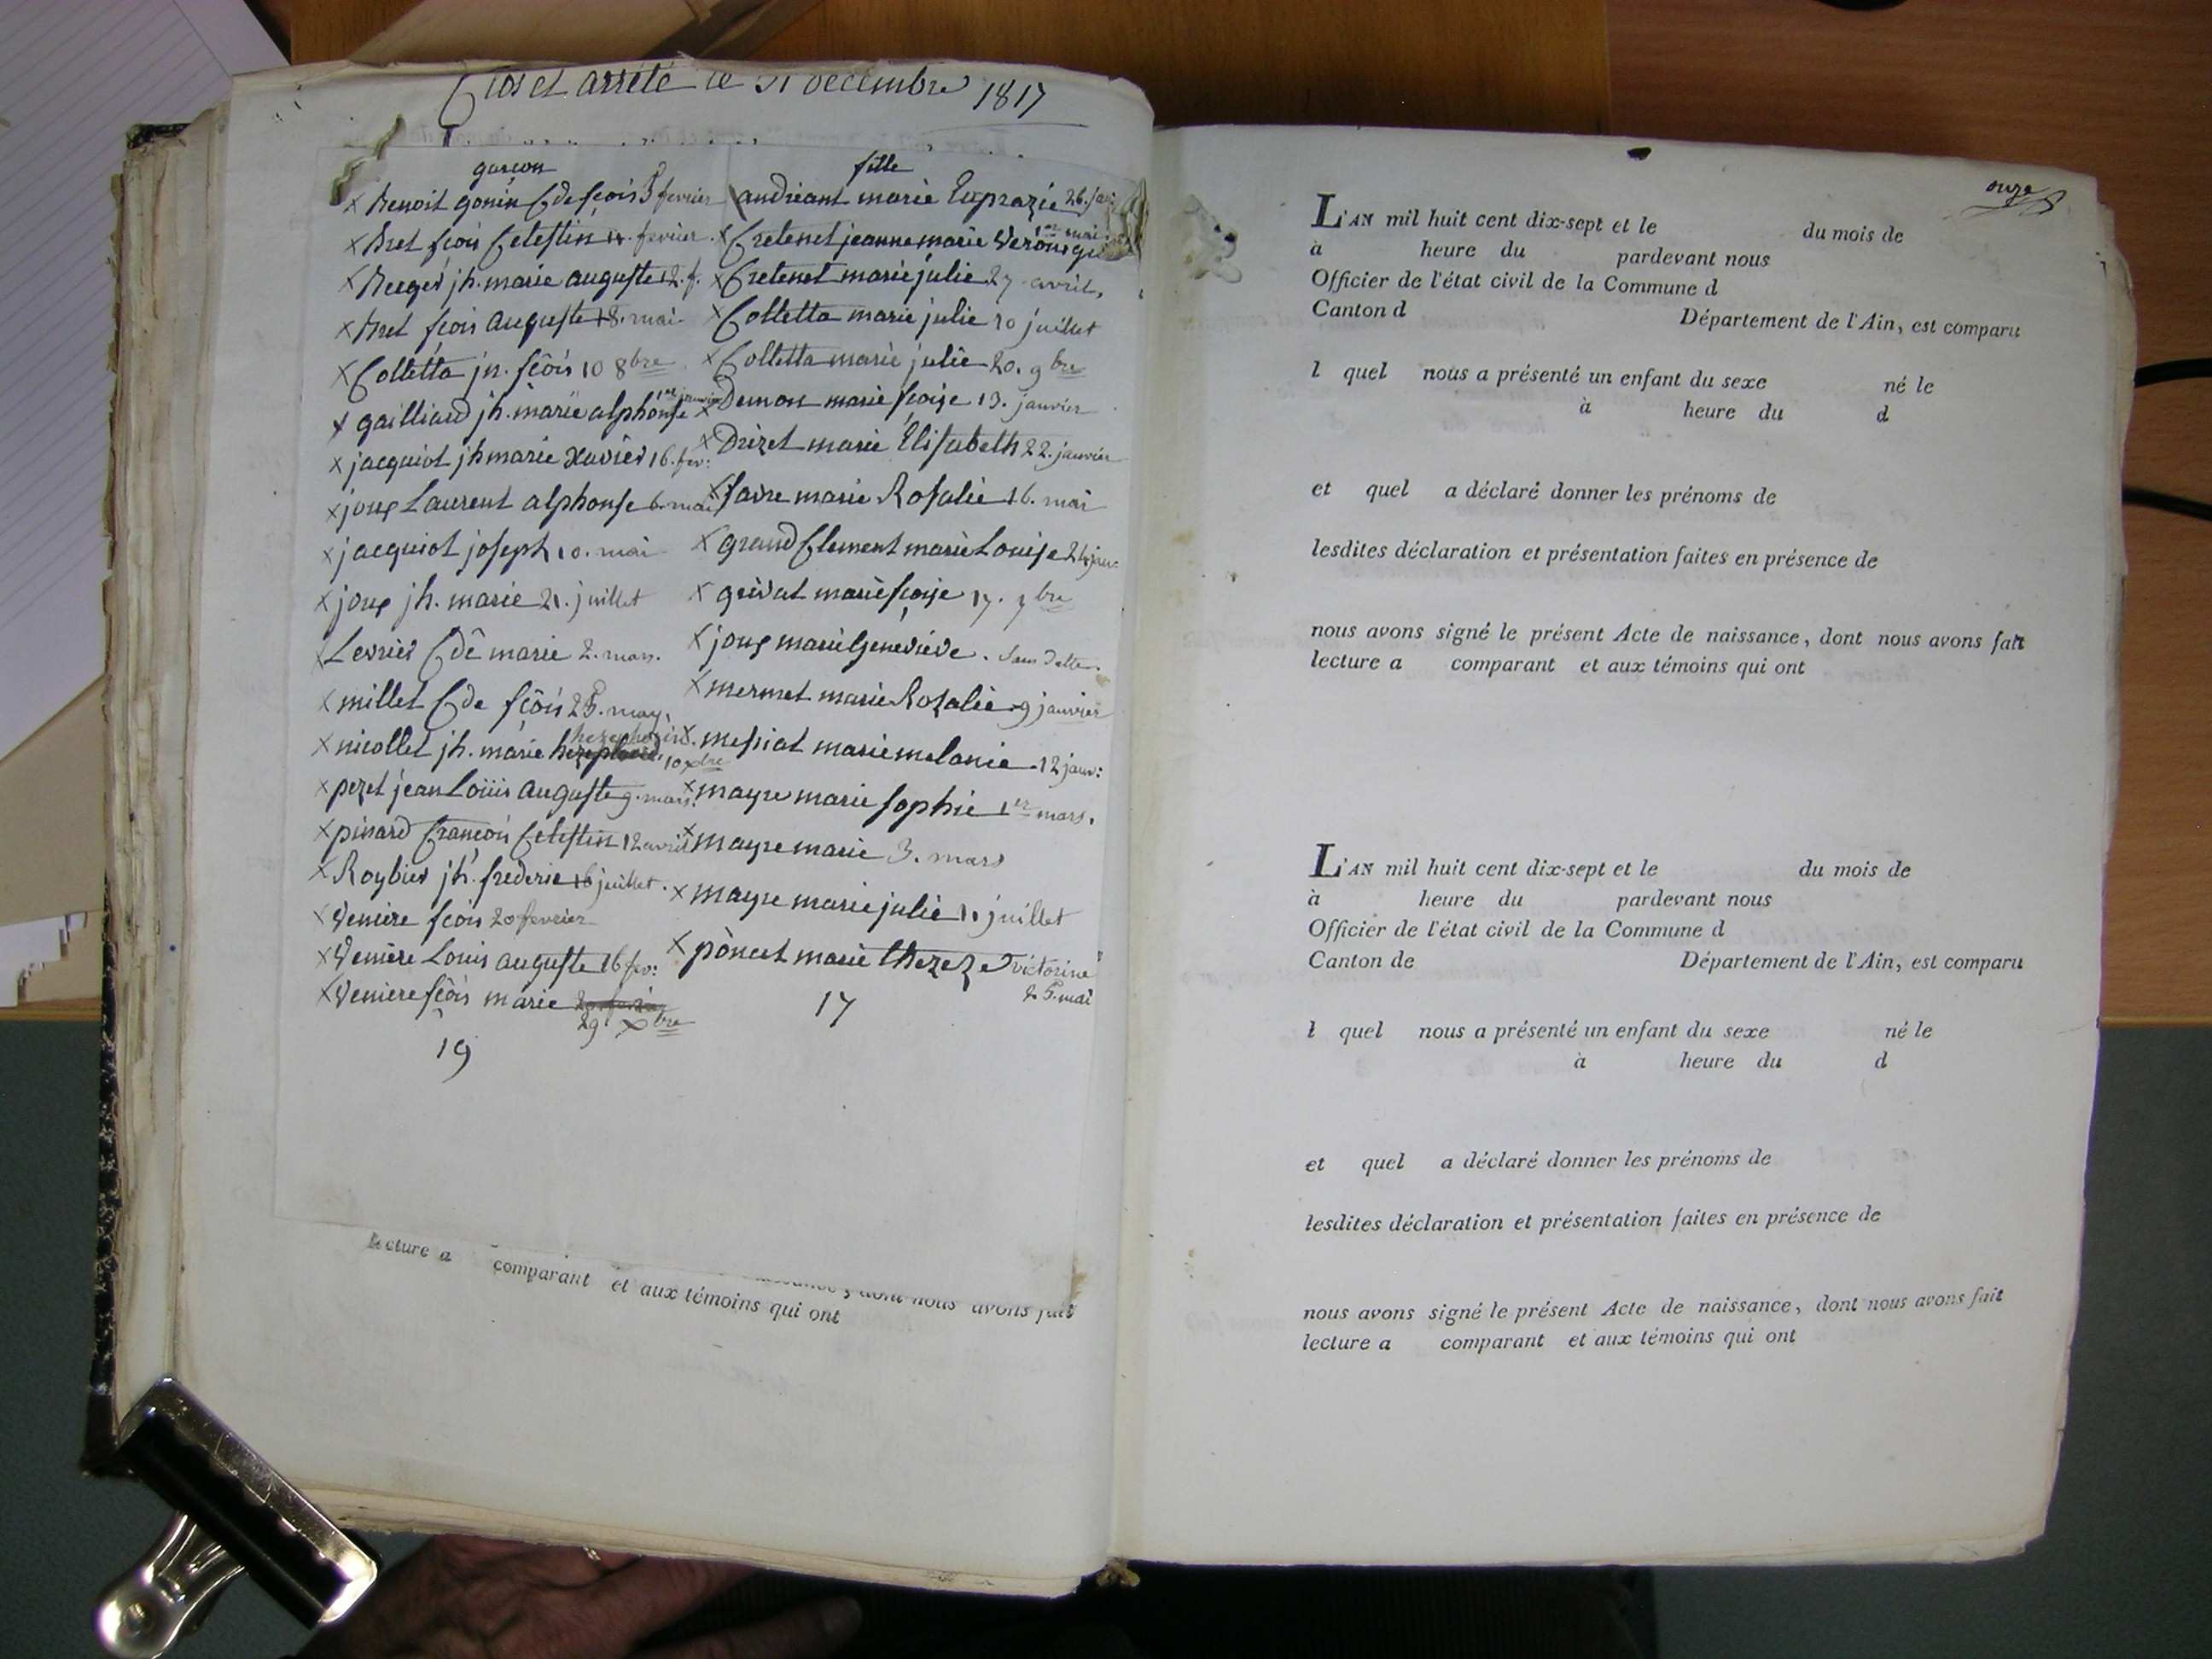 Clos et arrété le 31 decembre 1817
garcon
x Benoit gonin Cde fcois 5 fevrier
x Bret fcois Celestin 14. fevrier.
x Berger jh. marie auguste 12. f.
x Bret fcois auguste 18. mai
x Colletta jn. fcois 10 8bre
x gailliard jh. marie alphonse 1er janvier
x jacquiot jh marie Xavier 16. fev:
x joux Laurent alphonse 6. mai
x jacquiot joseph 10. mai
x joux jh. marie 21. juillet
x Levrier Cde marie 2. mars.
x millet Cde fcois 25. may.
x nicollet jh. marie 10 xbre
x pezet jean Louis auguste 9. mars.
x pinard francois Celestin 12 avril
x Roybier jh. frederic 16 juillet.
x Veniere fcois 20 fevrier
x Veniere Louis auguste 16 fev:
x Veniere fcois marie
29 Xbre
19
fille
andréant marie Euprazie 26.
x Cretenet jeanne marie Veronique 1er mai
x Cretenet marie julie 27 avril.
x Colletta marie julie 10 juillet
x Colletta marie julie 20. 9bre
x Demon marie fcoise 13. janvier
x Drizet marie Elisabeth 22. janvier
x favre marie Rosalie 16. mai
x grand Clement marie Louise 24 janv:
x grivat marie fcoise 17. 7bre
x joux marie Genevieve. Sans datte.
x mermet marie Rozalie 9 janvier
x messiat marie melanie 12 janv:
x mayre marie sophie 1er mars.
x mayre marie 3. mars
x mayre marie julie 11 juillet
x poncet marie thereze victorine
25. mai
17
lecture a comparant et aux témoins qui ont
dont nous avons fait
onze
L'AN mil huit cent dix-sept et le du mois de
à heure du pardevant nous
Officier de l'état civil de la Commune d
Canton d Département de l'Ain, est comparu
l quel nous a présenté un enfant du sexe né le
à heure du d
et quel a déclaré donner les prénoms de
lesdites déclaration et présentation faites en présence de
nous avons signé le présent Acte de naissance, dont nous avons fait
lecture a comparant et aux témoins qui ont
L'AN mil huit cent dix-sept et le du mois de
à heure du pardevant nous
Officier de l'état civil de la Commune d
Canton de Département de l'Ain, est comparu
l quel nous a présenté un enfant du sexe né le
à heure du d
et quel a déclaré donner les prénoms de
lesdites déclaration et présentation faites en présence de
nous avons signé le présent Acte de naissance, dont nous avons fait
lecture a comparant et aux témoins qui ont